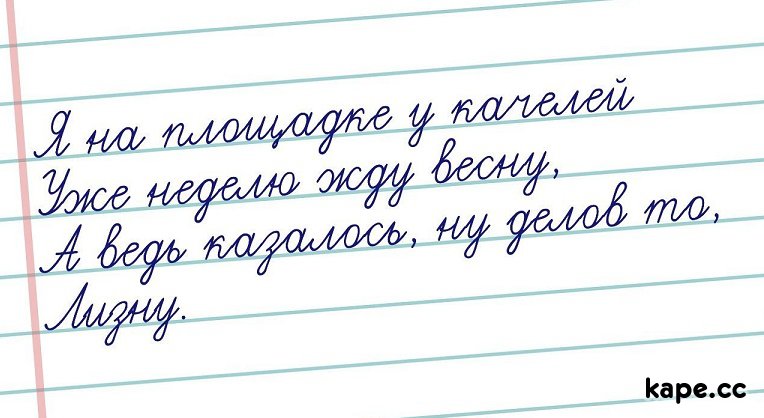 Я на площадке у качелей
Уже неделю жду весну,
А ведь казалось, ну делов то,
Лизну.
kape.cc